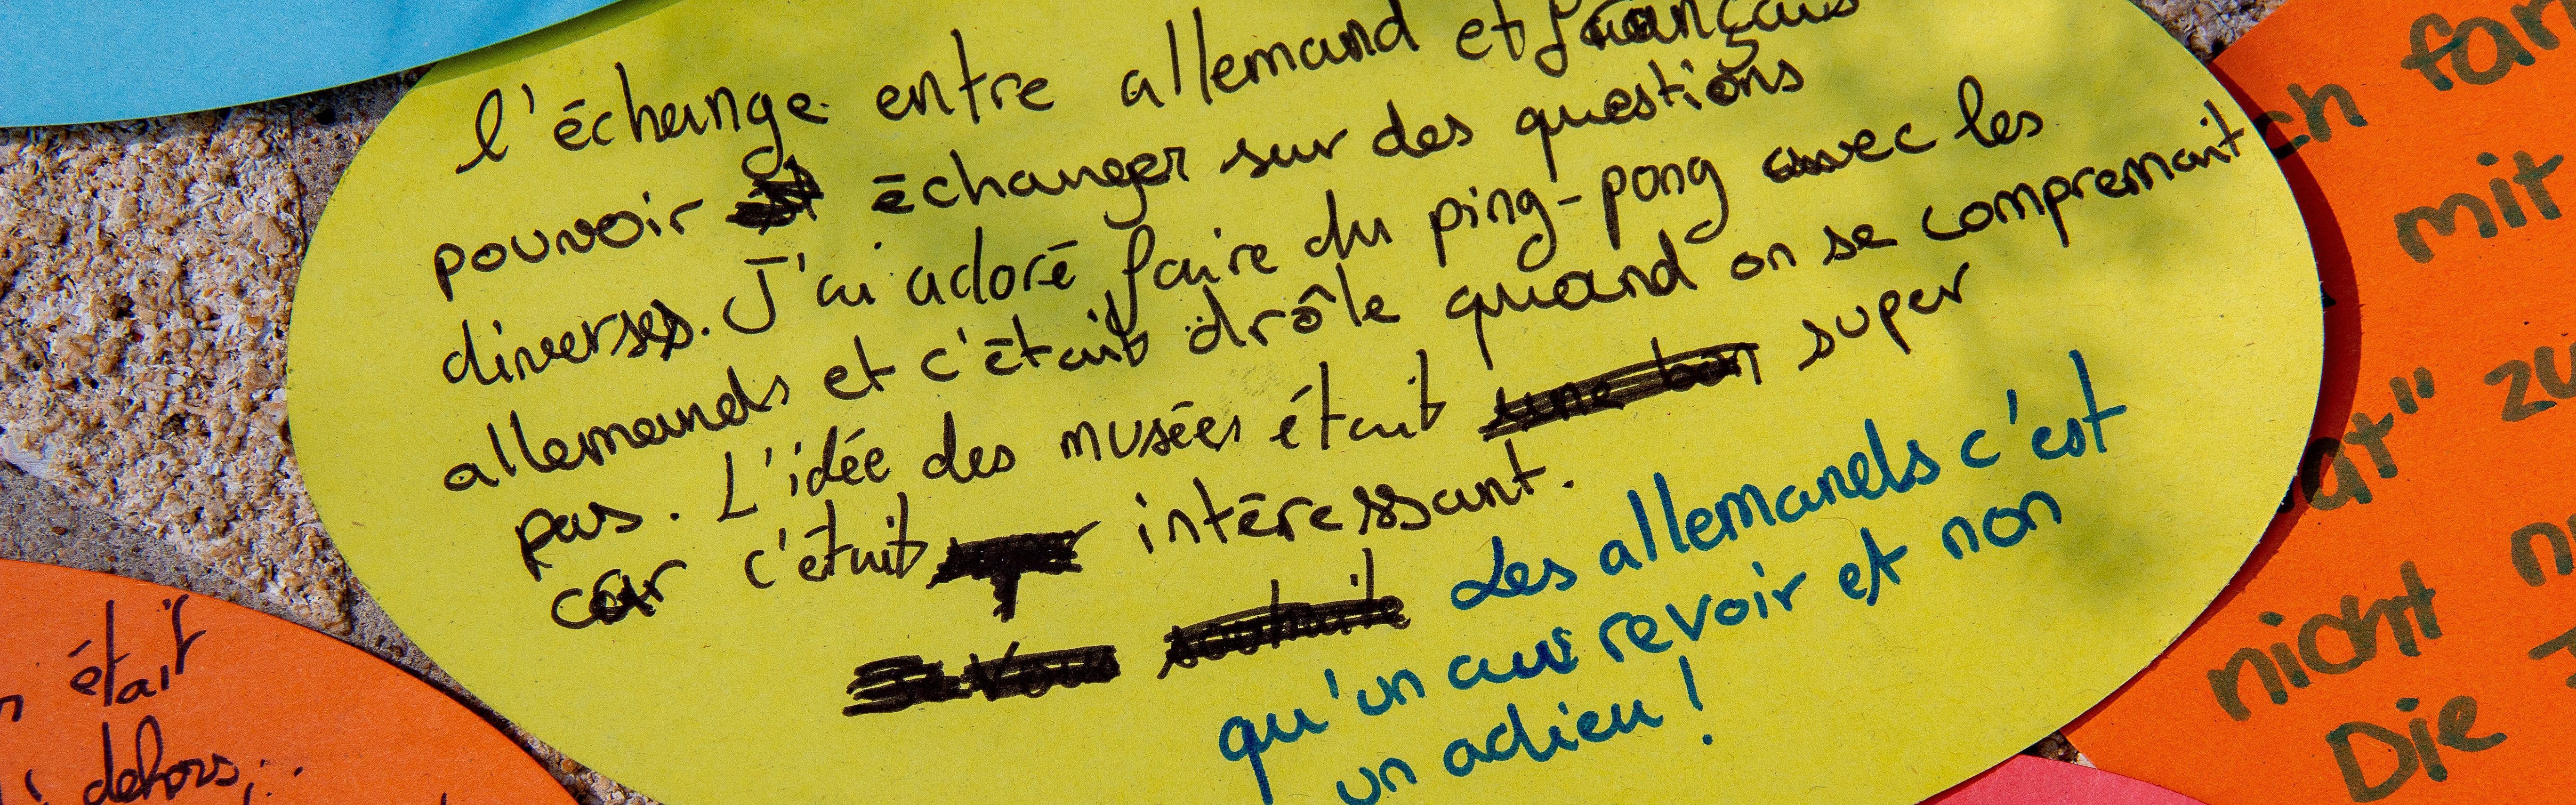 l'échange entre allemand et français
pouvoir échanger sur des questions
diverses. J'ai adoré faire du ping-pong avec les
allemands et c'était drôle quand on se comprenait
pas. L'idée des musées était une bon super
car c'était intéressant.
Vous souhaite Les allemands c'est
qu'un au revoir et non
un adieu !
était
dehors,
ch fan
mit
at" zu
nicht
Die